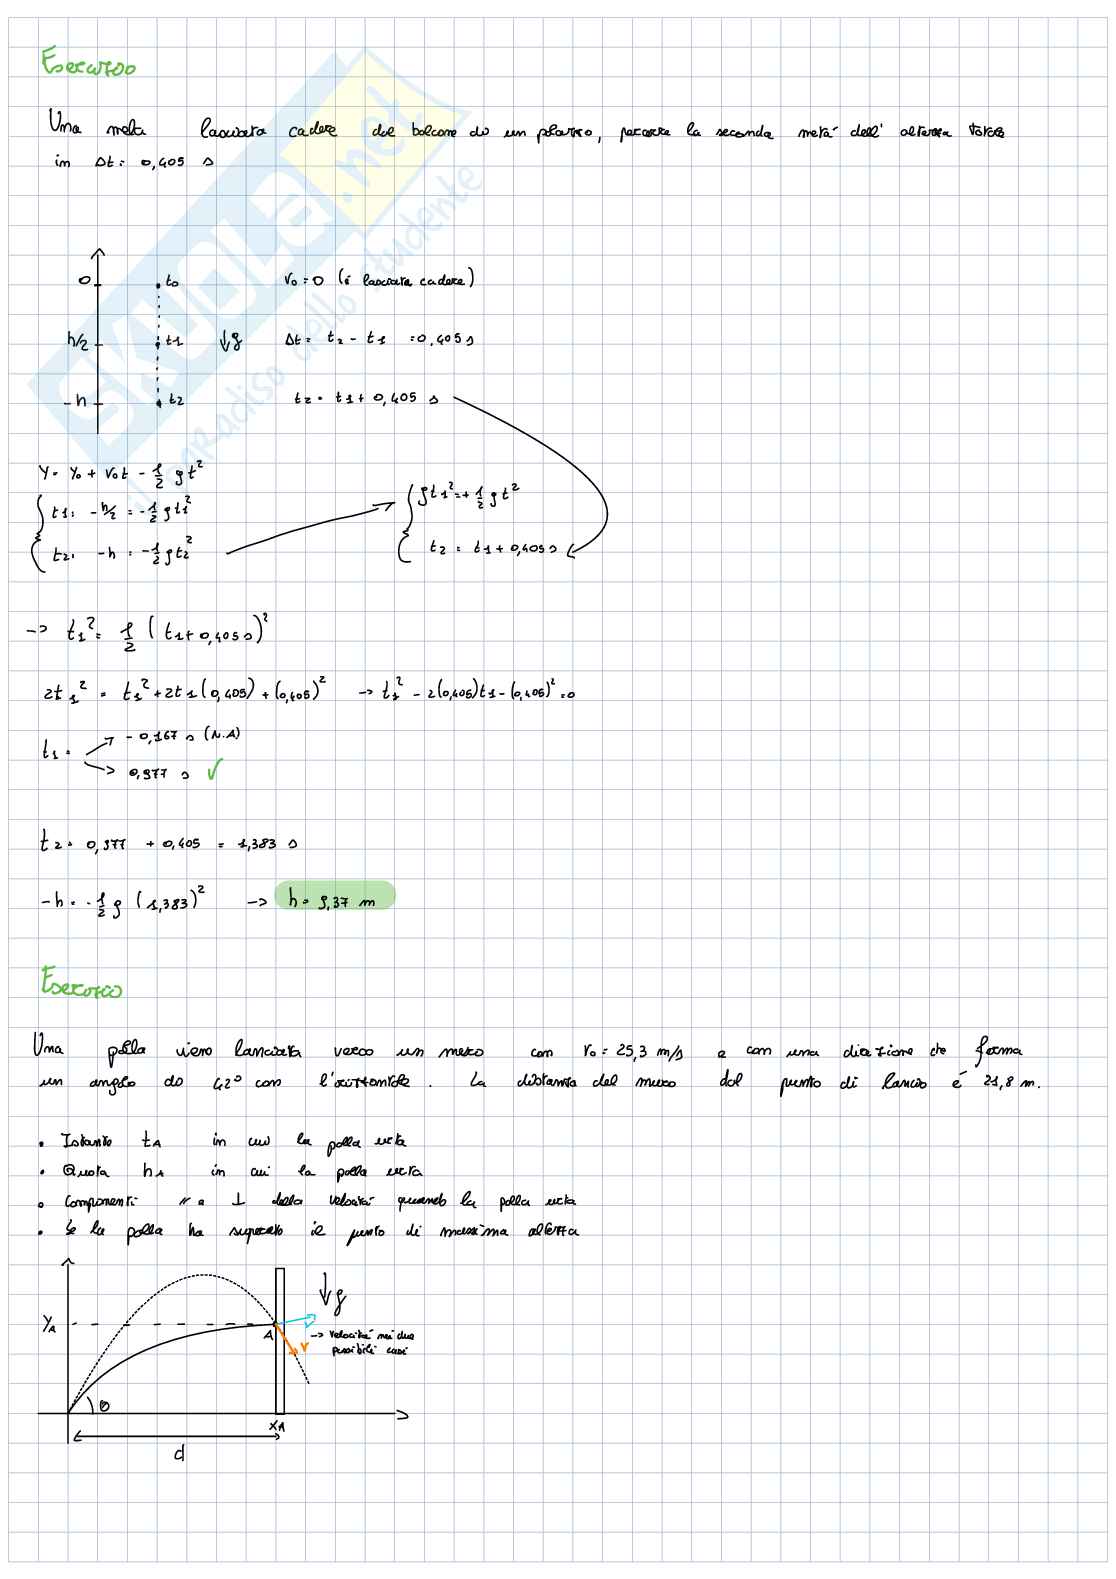 Esercizio
Una mela lasciata cadere dal balcone di un palazzo, percorre la seconda metà dell'altezza totale
in Δt = 0,405 s
0 t0 v0 = 0 (è lasciata cadere)
h/2 t1 ↓g Δt = t2 - t1 = 0,405 s
-h t2 t2 = t1 + 0,405 s
y = y0 + v0t - 1/2 g t²
t1: -h/2 = -1/2 g t1²
t2: -h = -1/2 g t2²
g t1² = + 1/2 g t²
t2 = t1 + 0,405 s
-> t1² = 1/2 (t1 + 0,405 s)²
2t1² = t1² + 2t1(0,405) + (0,405)² -> t1² - 2(0,405)t1 - (0,405)² = 0
t1 = - 0,167 s (N.A)
0,977 s ✓
t2 = 0,977 + 0,405 = 1,383 s
-h = - 1/2 g (1,383)² -> h = 9,37 m
Esercizio
Una palla viene lanciata verso un muro con v0 = 25,3 m/s e con una direzione che forma
un angolo di 42° con l'orizzontale. La distanza del muro dal punto di lancio è 21,8 m.
• Istante tA in cui la palla urta
• Quota hA in cui la palla urta
• Componenti // e ⊥ della velocità quando la palla urta
• Se la palla ha superato il punto di massima altezza
↓g
yA
A
v
v
-> Velocità nei due
possibili casi
θ
xA
d
SKUOLA.net
il paradiso dello studente